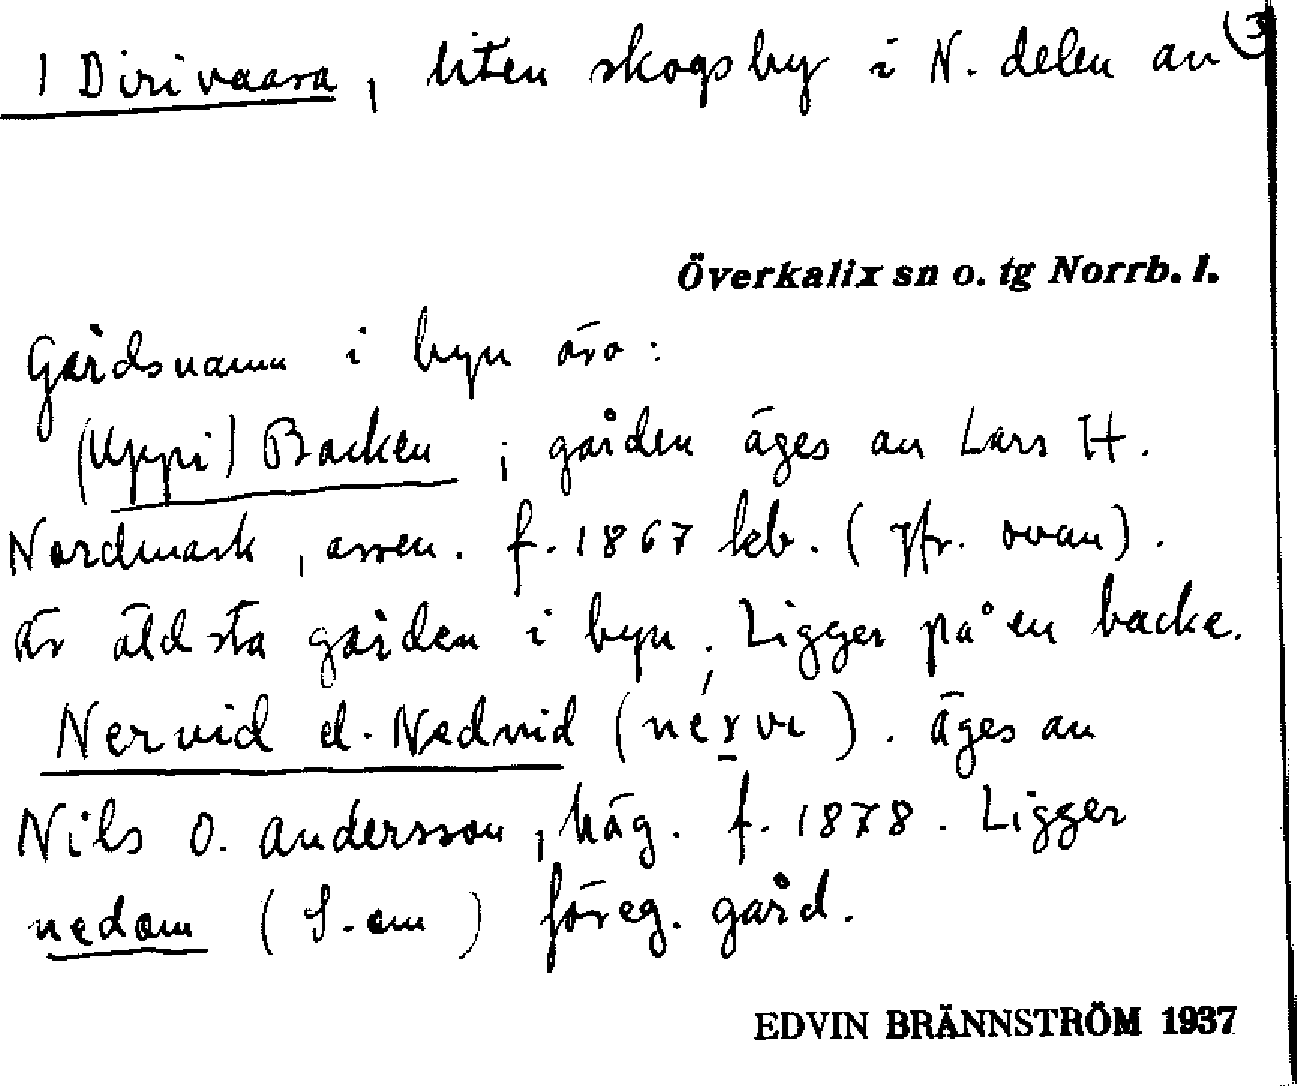 1 Dirivaara, liten skogsby i N. delen av (3
Överkalix sn o. tg Norrb. l.
Gårdsnamn i byn äro:
(Uppi) Backen; gården äges av Lars H.
Nordmark, arren. f. 1867 kb. (Jfr. ovan).
Är äldsta gården i byn. Ligger på en backe.
Nervid el. Nedvid (nérvi). Äges av
Nils O. Andersson, häg. f. 1878. Ligger
nedom (S. om) föreg. gård.
EDVIN BRÄNNSTRÖM 1937